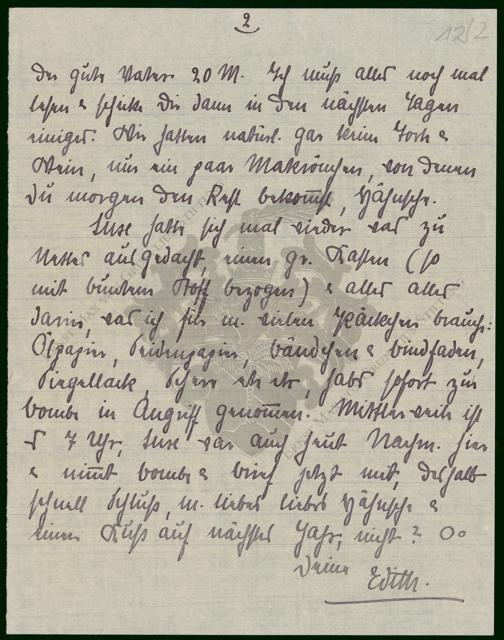 2
12/2
der gute Vater 20 M. Ich muß alles noch mal
lesen & schicke Dir dann in den nächsten Tagen
einiges. Wir hatten natürl. gar keine Torte &
Wein, nur ein paar Makrönchen, von denen
Du morgen den Rest bekommst, Hähnsche.
Suse hatte sich mal wieder was zu
Nettes ausgedacht, einen gr. Kasten (so
mit buntem Stoff bezogen) & alles alles
darin, was ich für m. vielen Päckchen brauche:
Ölpapier, Seidenpapier, Bändchen & Bindfaden,
Siegellack, Schere etc etc, habs sofort zur
Bombe in Angriff genommen. Mittlerweile ist
7 Uhr, Suse war auch heut Nachm. hier
& nimmt Bombe & Brief jetzt mit, deshalb
schnell Schluß, m. liebes liebes Hähnsche &
einen Kuß auf nächstes Jahr, nicht?
Deine
Edith.